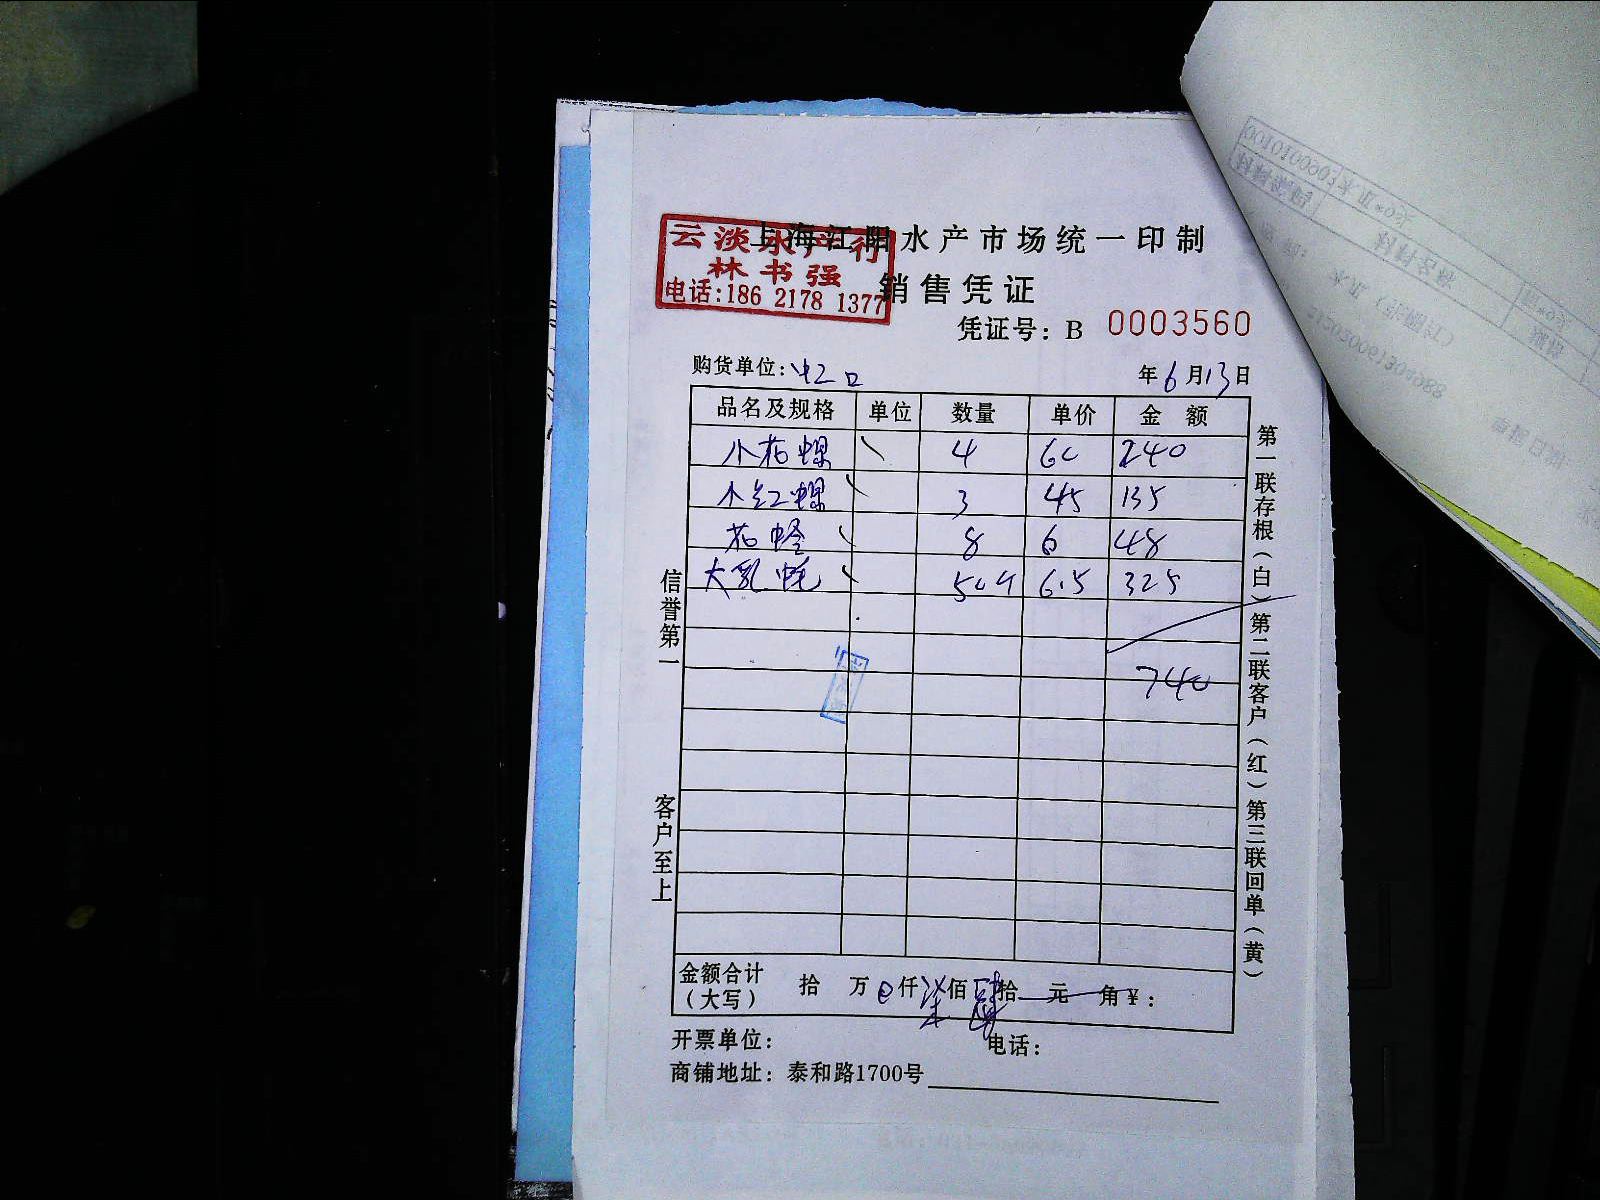 上海江阳水产市场统一印制
云淡水产行
林书强
电话:186 2178 1377
销售凭证
凭证号: B 0003560
购货单位: 虹口 年6月13日
品名及规格 单位 数量 单价 金额
小花螺 4 60 240
小红螺 3 45 135
花蛤 8 6 48
大乳蚝 50个 6.5 325
740
信誉第一
客户至上
第一联存根(白)第二联客户(红)第三联回单(黄)
金额合计 拾 万 仟柒佰肆拾 元 角¥:
(大写)
开票单位: 电话:
商铺地址: 泰和路1700号